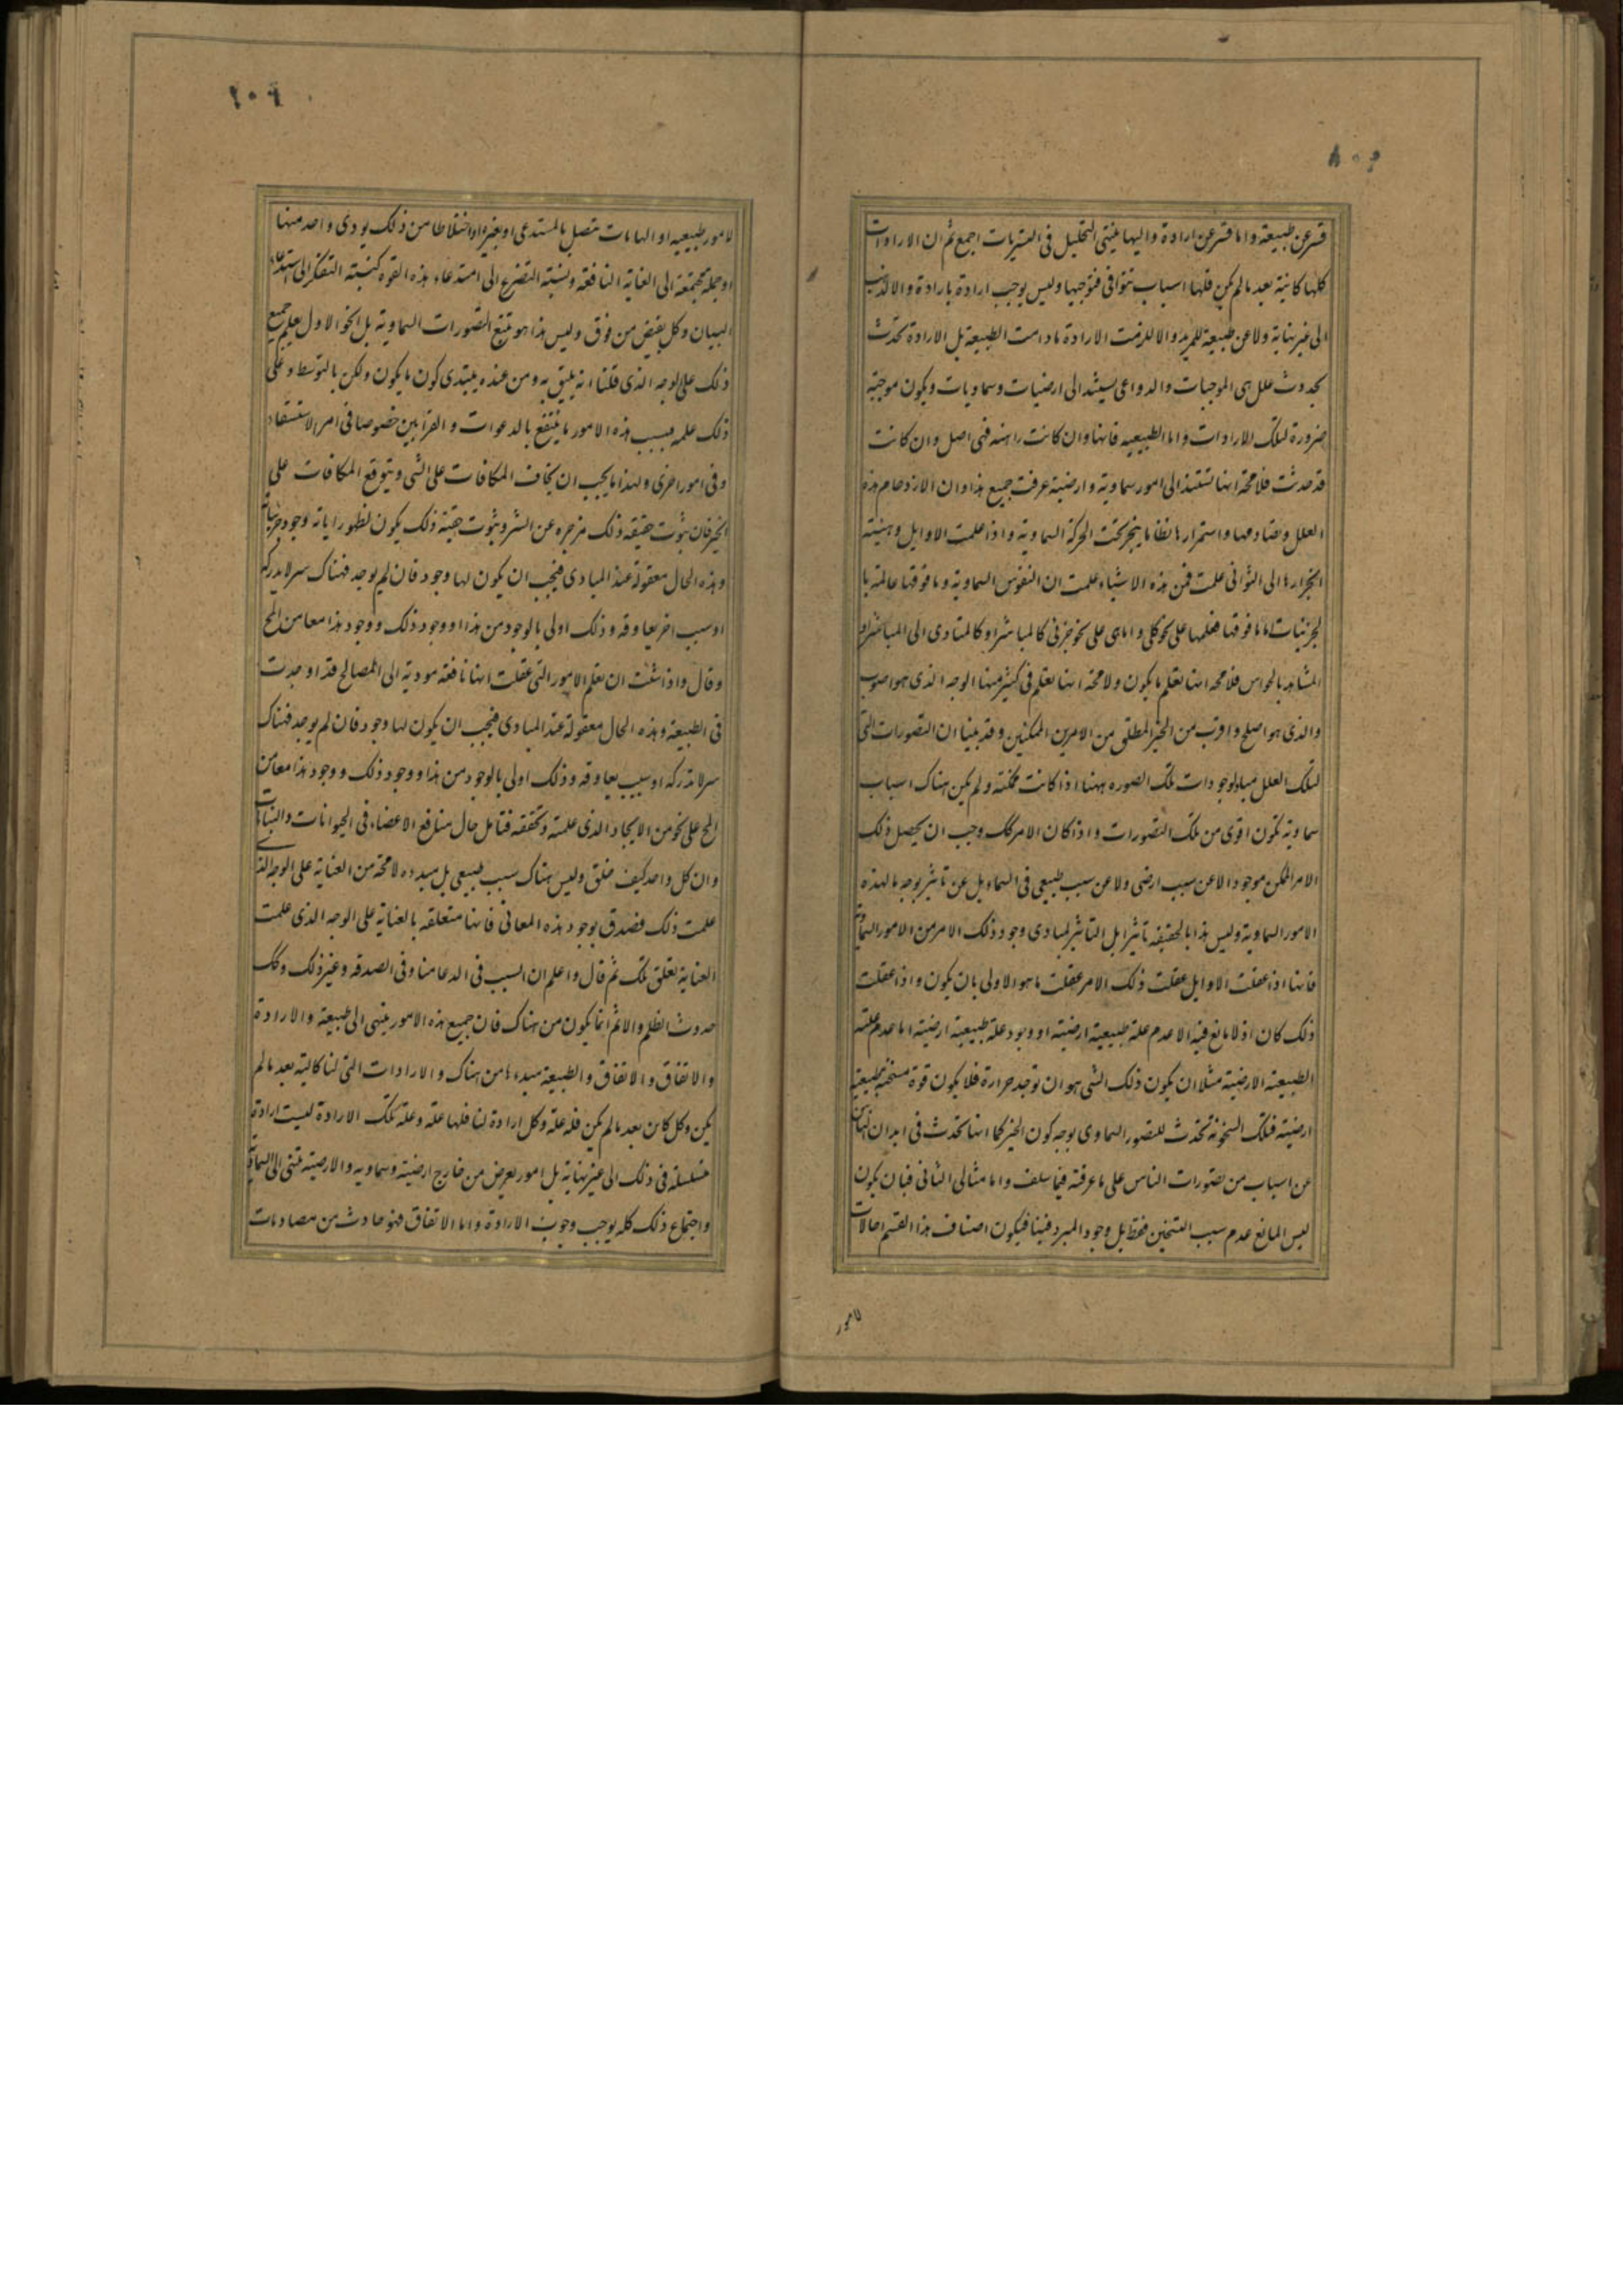 قسر عن طبيعة واما قسر عن ارادة واليها ينتهى التحليل فى القسريات اجمع ثم ان الارادات
كلها كائنة بعد مالم يكن فلها اسباب تتوافى فتوجبها وليس يوجب ارادة بارادة والا لذهب
الى غير نهاية ولا عن طبيعة للمريد والا للزمت الارادة مادامت الطبيعة بل الارادة تحدث
بحدوث علل هى الموجبات والدواعى يستند الى ارضيات وسماويات ويكون موجبة
ضرورة لتلك الارادات واما الطبيعيه فانها وان كانت راهنه فهى اصل وان كانت
قد حدثت فلا محة انها تستند الى امور سماوية وارضية عرفت جميع هذا وان الازدحام هذه
العلل وتصادمها واستمرارها نظاما ينجر تحت الحركة السماوية واذا علمت الاوايل وهيئة
انجرارها الى الثوانى علمت فمن هذه الاشياء علمت ان النفوس السماوية وما فوقها عالمة با
لجزئيات اما ما فوقها فعلمها على نحو كلى واما هى على نحو جزئى كالمباشر او كالمتادى الى المباشر او
المشاهد بالحواس فلا محه انها تعلم ما يكون ولا محة انها تعلم فى كثير منها الوجه الذى هو اصوب
والذى هو اصلح واقرب من الخير المطلق من الامرين الممكنين وقد بينا ان التصورات التى
لتلك العلل مباد لوجودات تلك الصوره ههنا اذا كانت ممكنة ولم يكن هناك اسباب
سماوية تكون اقوى من تلك التصورات واذا كان الامر كك وجب ان يحصل ذلك
الامر الممكن موجودا لا عن سبب ارضى ولا عن سبب طبيعى فى السماء بل عن تاثير بوجه ما لهذه
الامور السماوية وليس هذا بالحقيقه تاثيرا بل التاثير لمبادى وجود ذلك الامر من الامور السماوية
فانها اذا عقلت الاوايل عقلت ذلك الامر عقلت ما هو الاولى بان يكون واذا عقلت
ذلك كان اذ لا مانع فيه الا عدم علة طبيعية ارضية او وجود علة طبيعية ارضية اما عدم علته
الطبيعية الارضية مثلا ان يكون ذلك الشى هو ان توجد حرارة فلا يكون قوة مسخنة طبيعية
ارضية فتلك السخونة تحدث للتصور السماوى بوجه كون الخير كما انها تحدث فى ابدان الناس
عن اسباب من تصورات الناس على ما عرفته فيما سلف واما مثالى الثانى فبان يكون
ليس المانع عدم سبب التسخين فقط بل وجود المبرد فينا فيكون اصناف هذا القسم احالات
لامور
٢٠٦
لامور طبيعيه او الهامات تتصل بالمستدعى او بغيره او اختلاطا من ذلك يودى واحد منها
او جملة مجتمعة الى الغاية النافعة ونسبة التضرع الى استدعاء هذه القوه كنسبة التفكر الى استدعاء
البيان وكل يفيض من فوق وليس هذا هو تتبع التصورات السماوية بل الحق الاول يعلم جميع
ذلك على الوجه الذى قلنا انه يليق به ومن عنده يبتدى كون ما يكون ولكن بالتوسط وعلى
ذلك علمه فبسبب هذه الامور ما ينتفع بالدعوات والقرابين خصوصا فى امر الاستسقاء
وفى امور اخرى ولهذا ما يجب ان يخاف المكافات على الشى ويتوقع المكافات على
الخير فان ثبوت حقيقه ذلك مزجره عن الشر وثبوت حقية ذلك يكون لظهور اياته وجود جزئياته
وهذه الحال معقولة عند المبادى فيجب ان يكون لها وجود فان لم يوجد فهناك سر لا يدرك
او سبب اخر يعاوقه وذلك اولى بالوجود من هذا ووجود ذلك ووجود هذا معا من المح
وقال واذا شئت ان تعلم الامور التى عقلت انها نافعة مودية الى المصالح قد اوجدت
فى الطبيعة وهذه الحال معقولة عند المبادى فيجب ان يكون لها وجود فان لم يوجد فهناك
سر لا تدركه او سبب يعاوقه وذلك اولى بالوجود من هذا ووجود ذلك ووجود هذا معا من
المح على نحو من الايجاد الذى علمته وتحققه فتامل حال منافع الاعضاء فى الحيوانات والنباتات
وان كل واحد كيف خلق وليس هناك سبب طبيعى بل مبدءه لا محة من العناية على الوجه الذى
علمت ذلك فصدق بوجود هذه المعانى فانها متعلقه بالعناية على الوجه الذى علمت
العناية تعلق تلك ثم قال واعلم ان السبب فى الدعا منا وفى الصدقه وغير ذلك وكك
حدوث الظلم والاثم انما يكون من هناك فان جميع هذه الامور ينتهى الى طبيعة والارادة
والاتفاق والاتفاق والطبيعة مبدءها من هناك والارادات التى لنا كائنة بعد مالم
يكن وكل كائن بعد مالم يكن فله علة وكل ارادة لنا فلها علة وعلة تلك الارادة ليست ارادة
متسلسلة فى ذلك الى غير نهاية بل امور يعرض من خارج ارضية وسماويه والارضية تنتهى الى السماوية
واجتماع ذلك كله يوجب وجوب الارادة واما الاتفاق فهو حادث من مصادمات